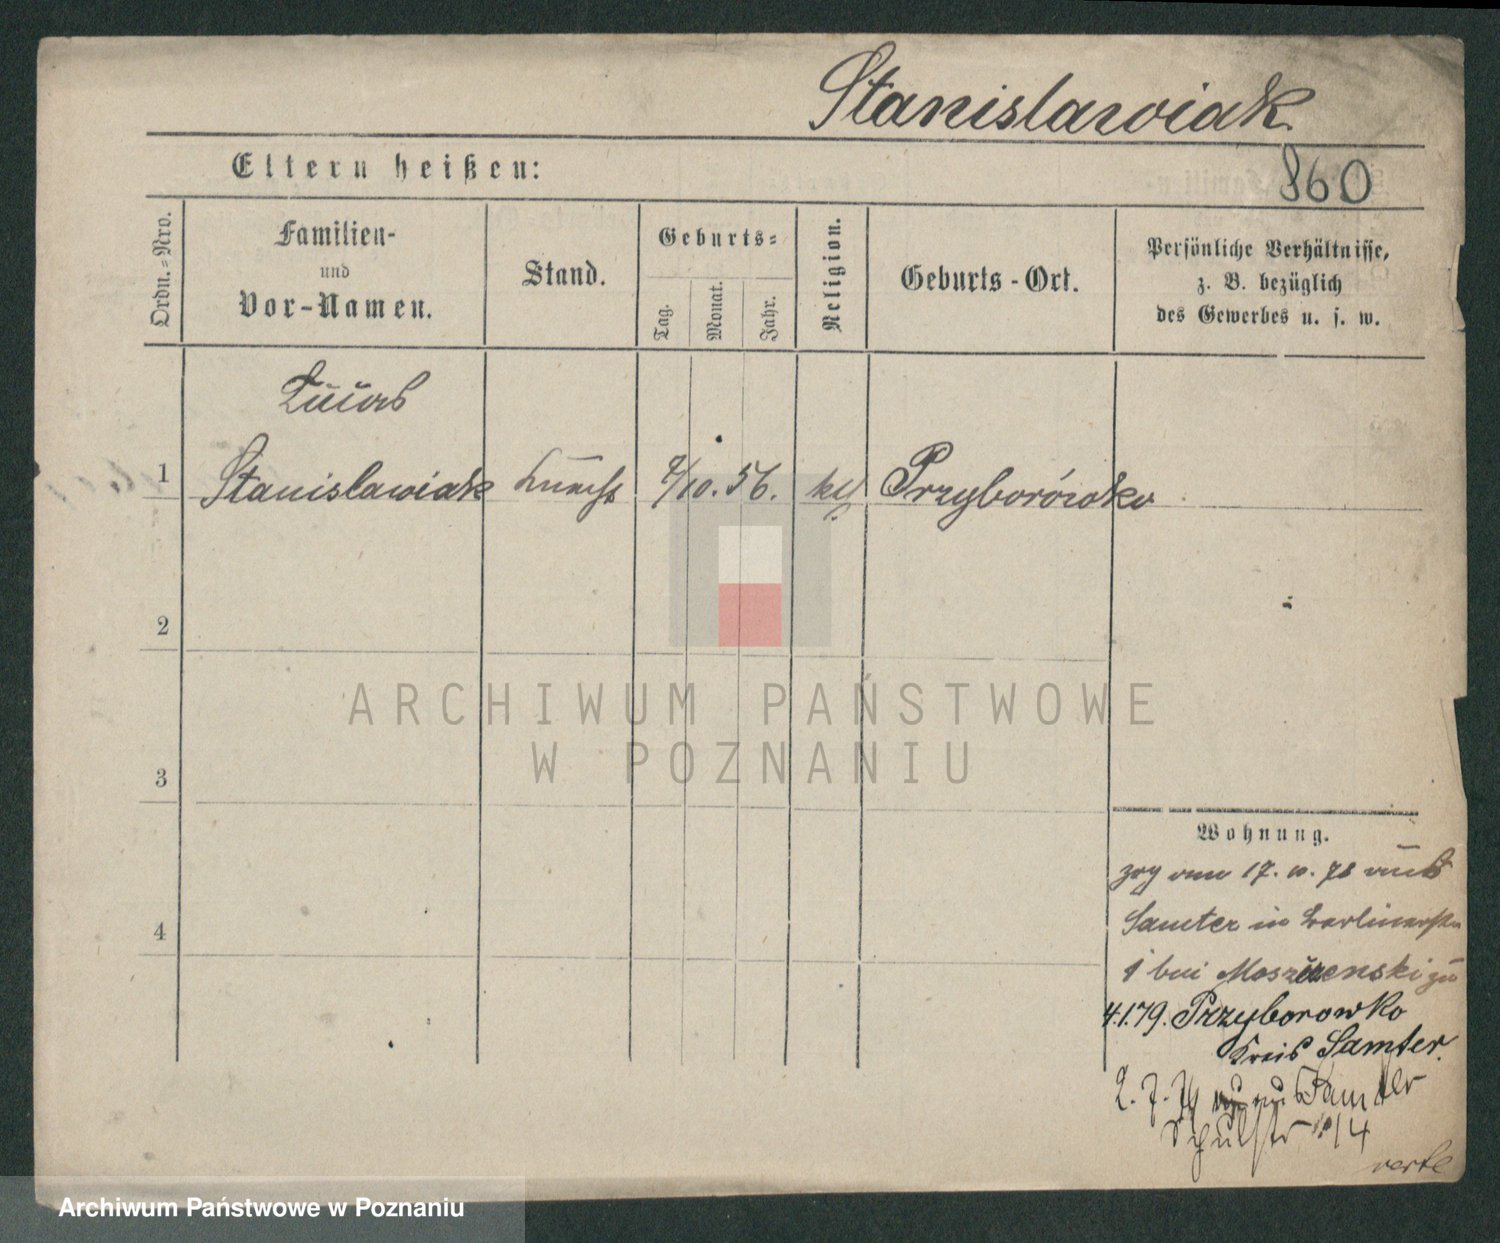 Stanislawiak
860
Eltern heißen:
Ordn.-Nro.
Familien-
und
Vor-Namen.
Stand.
Geburts-
Tag.
Monat.
Jahr.
Religion.
Geburts-Ort.
Persönliche Verhältnisse,
z. B. bezüglich
des Gewerbes u. s. w.
Lucas
1 Stanislawiak Knecht 7/10. 56. kth Przyborówko
2
3
4
ARCHIWUM PAŃSTWOWE
W POZNANIU
Wohnung.
zog am 17. 10. 78 aus
Samter in Berlinerstr
1 bei zu
4.1.79. Przyborowko
Kreis Samter.
2. 7. 79 Samter
Schulstr 14
verte
Archiwum Państwowe w Poznaniu